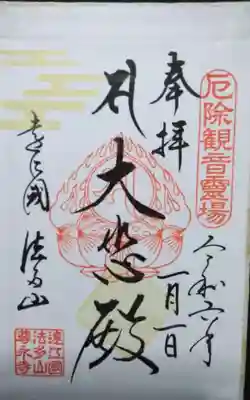 厄除観音霊場
奉拝
令和六年
一月一日
大悲殿
遠江國
法多山
遠江國
法多山
尊永寺